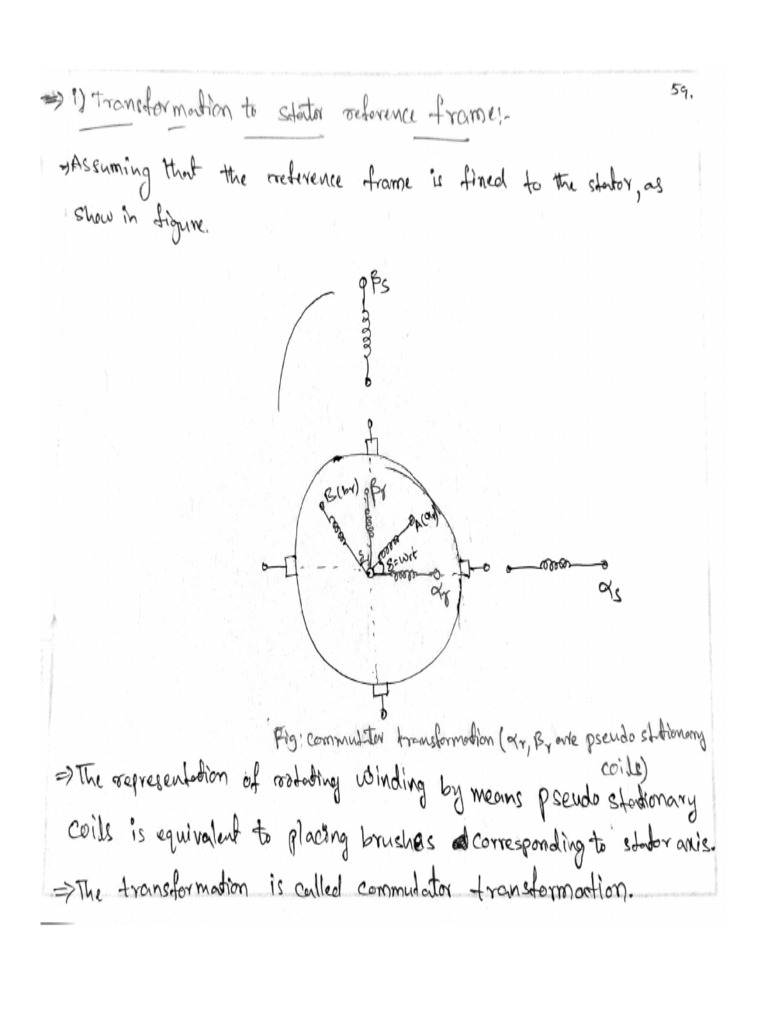 59.
⇒ i) Transformation to stator reference frame:-
→ Assuming that the reference frame is fined to the stator, as
show in figure.
βs
B(br) βr
A(ar)
δ
δ=wrt
αr
αs
Fig: commutator transformation (αr, βr are pseudo stationary
coils)
⇒ The representation of rotating winding by means pseudo stationary
coils is equivalent to placing brushes corresponding to stator axis.
⇒ The transformation is called commutator transformation.